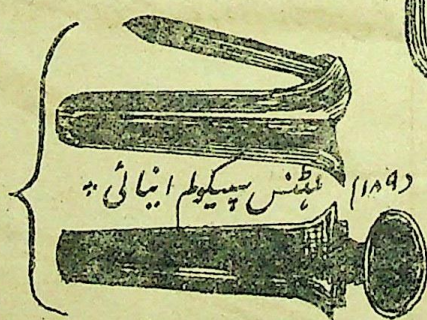 (۱۸۹) ہٹنس سپیکولم انیائی ۔